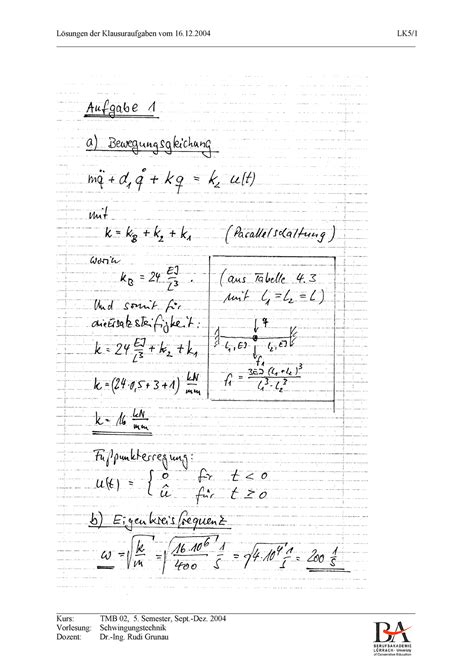 Lösungen der Klausuraufgaben vom 16.12.2004 LK5/1
Aufgabe 1
a) Bewegungsgleichung
mq̈ + d₁ q̇ + kq = k₂ u(t)
mit
k = k_B + k₂ + k₁ (Parallelschaltung)
worin
k_B = 24 EJ/L³ .
(aus Tabelle 4.3
mit L₁ = L₂ = L)
Und somit für
die Ersatzsteifigkeit:
k = 24 EJ/L³ + k₂ + k₁
k = (24·0,5 + 3 + 1) kN/mm
k = 16 kN/mm
q
L₁, EJ L₂, EJ
f₁
f₁ = 3EJ (L₁+L₂)³ / L₁³·L₂³
Fußpunkterregung:
u(t) = { 0 für t < 0
û für t ≥ 0
b) Eigenkreisfrequenz
ω = √(k/m) = √(16·10⁶/400) 1/s = √(4·10⁴) 1/s = 200 1/s
Kurs: TMB 02, 5. Semester, Sept.-Dez. 2004
Vorlesung: Schwingungstechnik
Dozent: Dr.-Ing. Rudi Grunau
BA
BERUFSAKADEMIE
LÖRRACH - University
of Cooperative Education